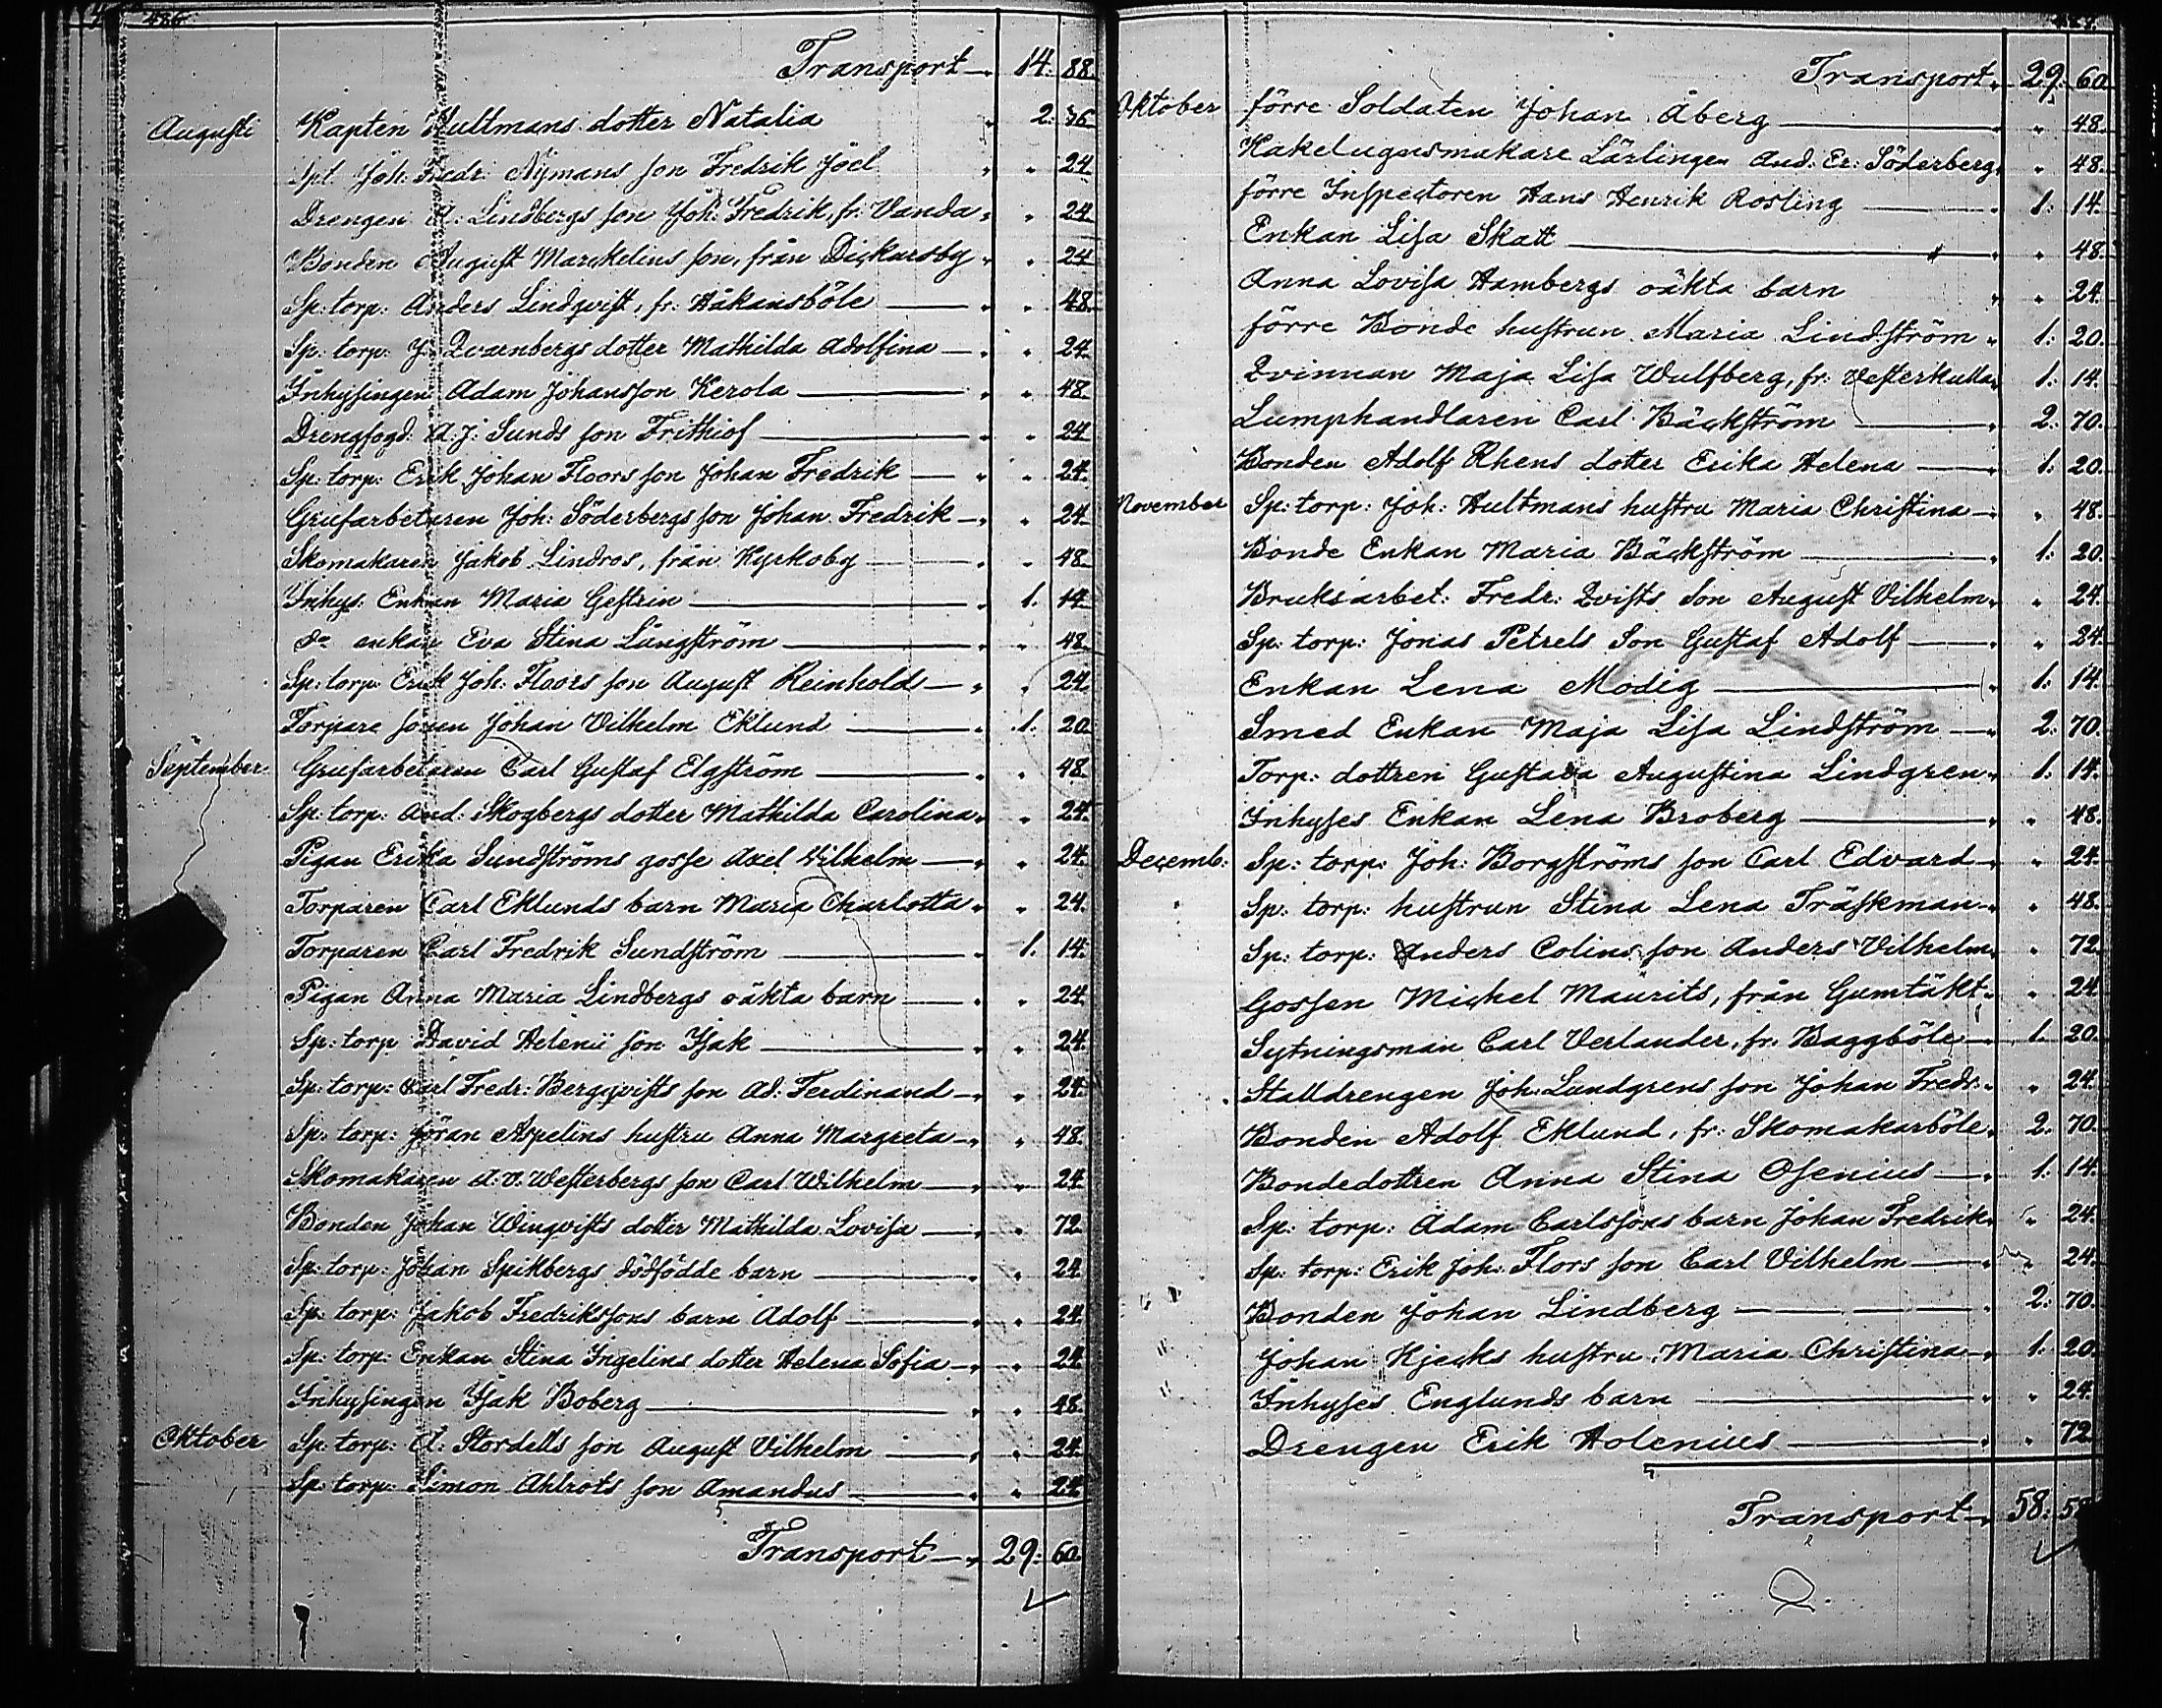 486.
Transport 14: 88.
Augusti Kapten Hultmans dotter Natalia " 2: 76
Spt. Joh: Fredr: Nymans son Fredrik Joel " " 24
Drengen A: Lindbergs son Joh: Fredrik, fr: Vanda " " 24
Bonden August Marckelins son, från Dickarsby " " 24
Sp: torp: Anders Lindqvist, fr: Håkansböle " " 48.
Sp: torp: J: Qvarnbergs dotter Mathilda Adolfina " " 24.
Inhysingen Adam Johansson Kerola " " 48.
Drengfogd: A: J: Sunds son Frithiof " " 24
Sp: torp: Erik Johan Floors son Johan Fredrik " " 24.
Grufarbetaren Joh: Söderbergs son Johan Fredrik " " 24
Skomakaren Jakob Lindros, från Kyrkoby " " 48.
Inhys: Enkan Maria Gestrin " 1. 14
do enkan Eva Stina Långström " " 48.
Sp: torp: Erik Joh: Floors son August Reinhold " " 24
Torpare sonen Johan Vilhelm Eklund " 1. 20.
September Grufarbetaren Carl Gustaf Elgström " " 48.
Sp: torp: And: Skogbergs dotter Mathilda Carolina " " 24.
Pigan Erika Sundströms gosse Axel Vilhelm " " 24.
Torparen Carl Eklunds barn Maria Charlotta " " 24.
Torparen Carl Fredrik Sundström " 1. 14.
Pigan Anna Maria Lindbergs oäkta barn " " 24
Sp: torp David Helenii son Isak " " 24.
Sp: torp: Carl Fredr: Bergqvists son Ad: Ferdinand " " 24.
Sp: torp: Jöran Aspelins hustru Anna Margreta " " 48.
Skomakaren A: V. Westerbergs son Carl Wilhelm " " 24
Bonden Johan Winqvists dotter Mathilda Lovisa " " 72.
Sp: torp: Johan Spikbergs dödfödde barn " " 24
Sp: torp: Jakob Fredrikssons barn Adolf " " 24
Sp: torp: Enkan Stina Ingelins dotter Helena Sofia " " 24
Inhysingen Isak Boberg " " 48
Oktober Sp: torp: A: Stordells son August Vilhelm " " 24
Sp: torp: Simon Ahlrots son Amandus " " 24
Transport " 29: 60
Transport " 29: 60
Oktober förre Soldaten Johan Åberg " " 48.
Kakelugnsmakare Lärlingen And: Er: Söderberg " " 48.
förre Inspectoren Hans Henrik Rosling " 1: 14.
Enkan Lisa Skatt " " 48.
Anna Lovisa Hambergs oäkta barn " " 24.
förre Bonde hustrun Maria Lindström " 1: 20.
Qvinnan Maja Lisa Wulfberg, fr: Vesterkulla " 1: 14.
Lumphandlaren Carl Bäckström " 2: 70.
Bonden Adolf Rhens dotter Erika Helena " 1: 20
November Sp: torp: Joh: Hultmans hustru Maria Christina " " 48.
Bonde Enkan Maria Bäckström " 1: 20.
Bruksarbet: Fredr: Qvists Son August Vilhelm " " 24.
Sp: torp: Jonas Petrels Son Gustaf Adolf " " 24.
Enkan Lena Modig " 1: 14.
Smed Enkan Maja Lisa Lindström " 2: 70.
Torp: dottren Gustava Augustina Lindgren " 1: 14.
Inhyses Enkan Lena Broberg " " 48.
Decemb: Sp: torp: Joh: Borgströms son Carl Edvard " " 24.
Sp: torp: hustrun Stina Lena Träskman " " 48.
Sp: torp: Anders Colins son Anders Vilhelm " " 72.
Gossen Mickel Maurits, från Gumtäkt " " 24
Sytningsman Carl Verlander, fr. Baggböle " 1. 20.
Stalldrengen Joh: Lundgrens son Johan Fredr: " " 24.
Bonden Adolf Eklund, fr: Skomakarböle " 2: 70.
Bondedottren Anna Stina Osenius " 1. 14.
Sp: torp: Adam Carlssons barn Johan Fredrik " " 24.
Sp: torp: Erik Joh: Flors son Carl Vilhelm " " 24.
Bonden Johan Lindberg " 2: 70.
Johan Kjecks hustru Maria Christina " 1: 20.
Inhyses Englunds barn " " 24.
Drengen Erik Holenius " " 72
Transport " 58: 58